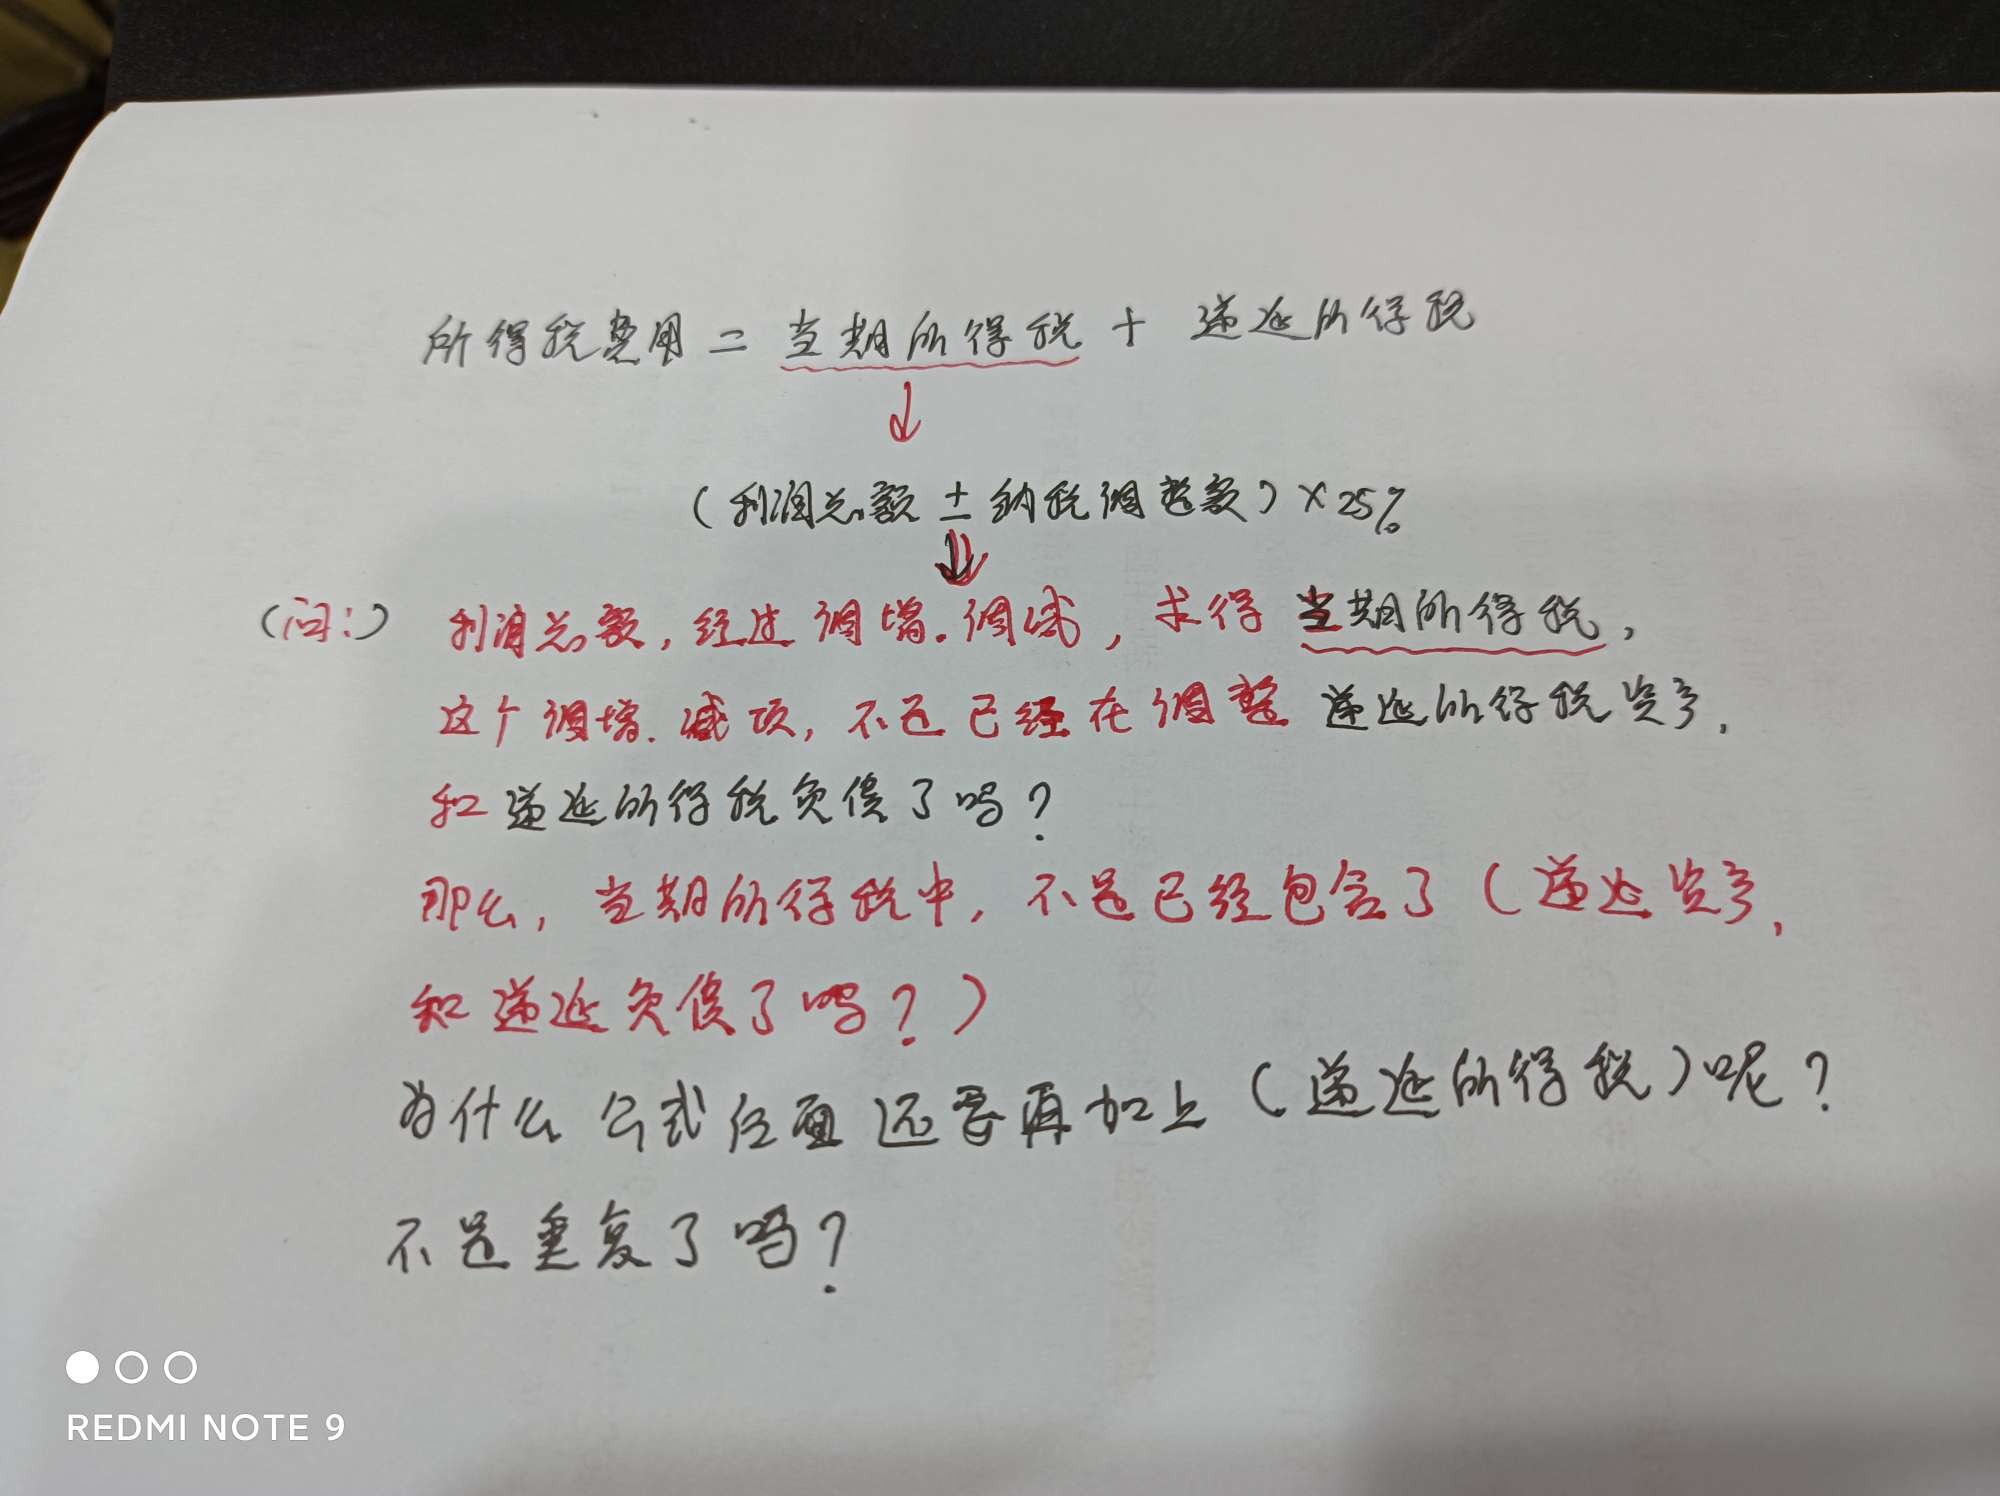 所得税费用 = 当期所得税 + 递延所得税
(利润总额 ± 纳税调整额) × 25%
(问:) 利润总额, 经过调增.调减, 求得当期所得税,
这个调增.减项, 不是已经在调整递延所得税资产,
和递延所得税负债了吗?
那么, 当期所得税中, 不是已经包含了(递延资产,
和递延负债了吗?)
为什么公式后面还要再加上(递延所得税)呢?
不是重复了吗?
REDMI NOTE 9